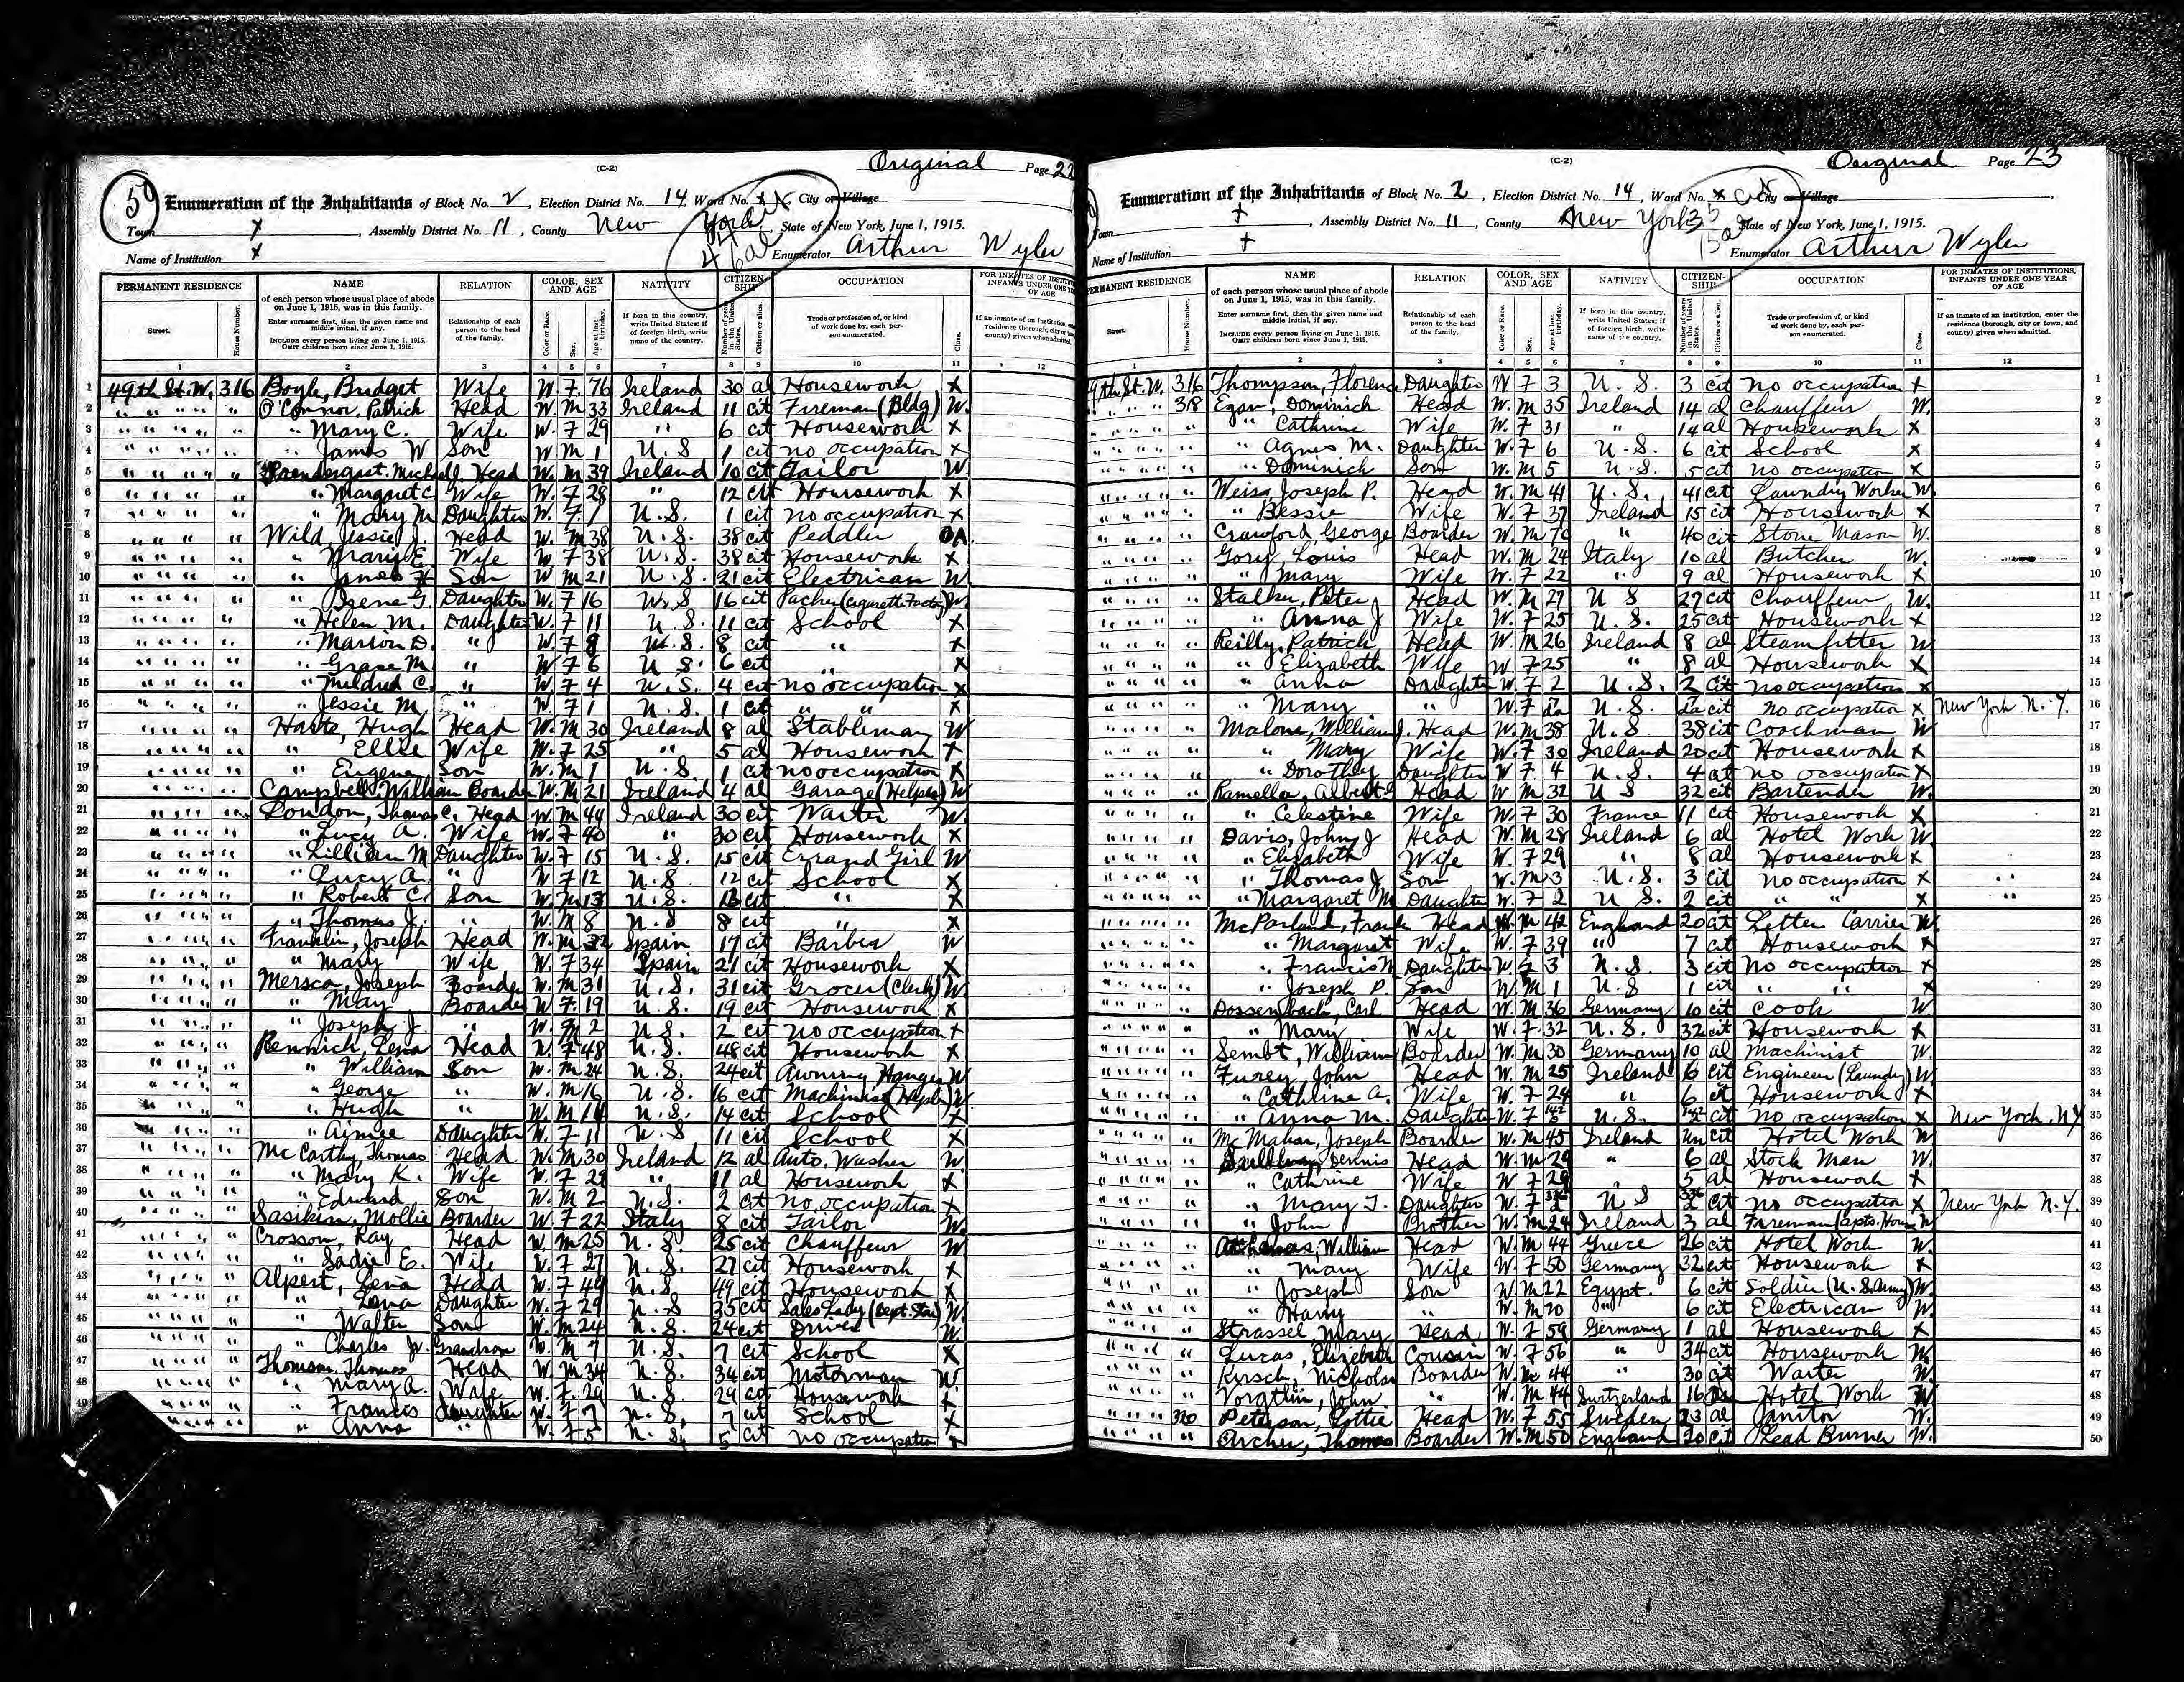 Original Page 22
(C-2)
59 Enumeration of the Inhabitants of Block No. 2, Election District No. 14, Ward No. x, City or Village
Town x, Assembly District No. 11, County New York, State of New York, June 1, 1915.
Name of Institution x Enumerator Arthur Wyler
PERMANENT RESIDENCE NAME RELATION COLOR, SEX AND AGE NATIVITY CITIZENSHIP OCCUPATION
1 49th St. W. 316 Boyle, Bridget Wife W. F 76 Ireland 30 al Housework X
2 " " " " " O'Connor, Patrick Head W. M 33 Ireland 11 cit Fireman (Bldg) W.
3 " " " " " " Mary C. Wife W. F 29 " 6 cit Housework X
4 " " " " " " James W Son W. M 1 U.S 1 cit no occupation X
5 " " " " " Prendergast, Michael J. Head W. M 39 Ireland 10 cit Tailor W
6 " " " " " " Margaret C. Wife W. F 28 " 12 cit Housework X
7 " " " " " " Mary M Daughter W. F 1 U.S 1 cit no occupation X
8 " " " " " Wild, Jessie J. Head W. M 38 U.S. 38 cit Peddler OA
9 " " " " " " Mary E. Wife W F 38 U.S. 38 cit Housework X
10 " " " " " " James H Son W M 21 U.S. 21 cit Electrican W
11 " " " " " " Irene G. Daughter W. F 16 U.S 16 cit Packer (Cigarette Factory) W.
12 " " " " " " Helen M. Daughter W. F 11 U.S. 11 cit School X
13 " " " " " " Marion D. " W. F 8 U.S. 8 cit " X
14 " " " " " " Grace M. " W F 6 U S. 6 cit " X
15 " " " " " " Mildred C. " W. F 4 U.S. 4 cit no occupation X
16 " " " " " " Jessie M. " W. F 1 U.S. 1 cit " " X
17 " " " " " Harte, Hugh Head W. M 30 Ireland 8 al Stableman W
18 " " " " " " Ellie Wife W. F 25 " 5 al Housework X
19 " " " " " " Eugene Son W. M 1 U.S 1 cit no occupation X
20 " " " " " Campbell, William Boarder W. M 21 Ireland 4 al Garage (Helper) W
21 " " " " " London, Thomas C. Head W. M 44 Ireland 30 cit Waiter W.
22 " " " " " " Lucy A. Wife W. F 40 " 30 cit Housework X
23 " " " " " " Lillian M Daughter W. F 15 U.S. 15 cit Errand Girl W
24 " " " " " " Lucy A. " W F 12 U.S. 12 cit School X
25 " " " " " " Robert C. Son W. M 13 U.S. 13 cit " X
26 " " " " " " Thomas J. " W. M 8 U.S 8 cit " X
27 " " " " " Franklin, Joseph Head W. M 32 Spain 17 cit Barber W
28 " " " " " " Mary Wife W. F 34 Spain 21 cit Housework X
29 " " " " " Mersca, Joseph Boarder W. M 31 U.S. 31 cit Grocer (Clerk) W
30 " " " " " " May Boarder W F 19 U.S. 19 cit Housework X
31 " " " " " " Joseph J. " W. M 2 U.S. 2 cit no occupation X
32 " " " " " Rennich, Lena Head W. F 48 U.S. 48 cit Housework X
33 " " " " " " William Son W. M 24 U.S. 24 cit Awning Hanger W
34 " " " " " " George " W. M 16 U.S. 16 cit Machinist (Helper) W
35 " " " " " " Hugh " W. M 14 U.S. 14 cit School X
36 " " " " " " Aimee Daughter W. F 11 U.S 11 cit School X
37 " " " " " McCarthy, Thomas Head W. M 30 Ireland 12 al Auto. Washer W.
38 " " " " " " Mary K. Wife W. F 29 " 11 al Housework X
39 " " " " " " Edward Son W. M 2 U.S. 2 cit no occupation X
40 " " " " " Sasikin, Mollie Boarder W. F 22 Italy 8 cit Tailor W.
41 " " " " " Crosson, Ray Head W. M 25 U.S. 25 cit Chauffeur W
42 " " " " " " Sadie E. Wife W. F 27 U.S. 27 cit Housework X
43 " " " " " Alpert, Lena Head W. F 49 U.S 49 cit Housework X
44 " " " " " " Lena Daughter W. F 29 U.S 35 cit Sales Lady (Dept. Store) W.
45 " " " " " " Walter Son W. M 24 U.S. 24 cit Driver W.
46 " " " " " " Charles Jr. Grandson W. M 7 U.S. 7 cit School X
47 " " " " " Thomson, Thomas Head W. M 34 U.S. 34 cit Motorman W.
48 " " " " " " Mary A. Wife W. F 29 U.S 29 cit Housework X
49 " " " " " " Francis daughter W. F 7 U.S. 7 cit School X
" " " " " " Anna " W. F 5 U.S. 5 cit no occupation X
Original Page 23
(C-2)
Enumeration of the Inhabitants of Block No. 2, Election District No. 14, Ward No. x City or Village
Town x, Assembly District No. 11, County New York State of New York, June 1, 1915.
Name of Institution x Enumerator Arthur Wyler
PERMANENT RESIDENCE NAME RELATION COLOR, SEX AND AGE NATIVITY CITIZENSHIP OCCUPATION FOR INMATES OF INSTITUTIONS, INFANTS UNDER ONE YEAR OF AGE
9th St. W. 316 Thompson, Florence Daughter W F 3 U.S. 3 cit no occupation X 1
" " " " 318 Egan, Dominick Head W. M 35 Ireland 14 al Chauffeur W. 2
" " " " " " Cathrine Wife W. F 31 " 14 al Housework X 3
" " " " " " Agnes M. Daughter W. F 6 U.S. 6 cit School X 4
" " " " " " Dominick Son W. M 5 U.S. 5 cit no occupation X 5
" " " " " Weiss, Joseph P. Head W. M 41 U.S. 41 cit Laundry Worker W. 6
" " " " " " Bessie Wife W. F 37 Ireland 15 cit Housework X 7
" " " " " Crawford, George Boarder W. M 70 " 40 cit Stone Mason W. 8
" " " " " Gory, Louis Head W. M 24 Italy 10 al Butcher W. 9
" " " " " " Mary Wife W. F 22 " 9 al Housework X 10
" " " " " Stalker, Peter J Head W. M 27 U S 27 cit Chauffeur W. 11
" " " " " " Anna J Wife W. F 25 U.S. 25 cit Housework X 12
" " " " " Reilly, Patrick Head W. M 26 Ireland 8 al Steamfitter W 13
" " " " " " Elizabeth Wife W F 25 " 8 al Housework X 14
" " " " " " Anna Daughter W. F 2 U.S. 2 cit no occupation X 15
" " " " " " Mary " W. F da U.S. da cit no occupation X New York N.Y. 16
" " " " " Malone, William J. Head W. M 38 U.S 38 cit Coachman W 17
" " " " " " Mary Wife W. F 30 Ireland 20 cit Housework X 18
" " " " " " Dorothy Daughter W F 4 U.S. 4 cit no occupation X 19
" " " " " Ramella, Albert J Head W. M 32 U S 32 cit Bartender W. 20
" " " " " " Celestine Wife W. F 30 France 11 cit Housework X 21
" " " " " Davis, John J Head W. M 28 Ireland 6 al Hotel Work W 22
" " " " " " Elizabeth Wife W. F 29 " 8 al Housework X 23
" " " " " " Thomas J Son W. M 3 U.S. 3 cit no occupation X 24
" " " " " " Margaret M Daughter W. F 2 U S. 2 cit " " X 25
" " " " " McParland, Frank Head W. M 42 England 20 cit Letter Carrier W. 26
" " " " " " Margaret Wife W. F 39 " 7 cit Housework X 27
" " " " " " Francis M Daughter W F 3 U.S. 3 cit no occupation X 28
" " " " " " Joseph P. Son W M 1 U.S 1 cit " " X 29
" " " " " Dossenbach, Carl Head W. M 36 Germany 10 cit Cook W 30
" " " " " " Mary Wife W. F 32 U.S. 32 cit Housework X 31
" " " " " Sembt, William Boarder W. M 30 Germany 10 al Machinist W. 32
" " " " " Furey, John Head W. M 25 Ireland 6 cit Engineer (Laundry) W. 33
" " " " " " Catherine A. Wife W. F 24 " 6 cit Housework X 34
" " " " " " Anna M. Daughter W. F U.S. cit no occupation X New York, N.Y 35
" " " " " McMahan, Joseph Boarder W. M 45 Ireland Un cit Hotel Work W 36
" " " " " Sullivan, Dennis Head W. M 29 " 6 al Stock Man W. 37
" " " " " " Cathrine Wife W F 29 " 5 al Housework X 38
" " " " " " Mary T. Daughter W. F U S cit no occupation X New York N.Y. 39
" " " " " " John Brother W. M 24 Ireland 3 al Fireman (apts. House) W 40
" " " " " William Head W. M 44 Greece 26 cit Hotel Work W. 41
" " " " " " Mary Wife W. F 50 Germany 32 cit Housework X 42
" " " " " " Joseph Son W. M 22 Egypt. 6 cit Soldier (U.S. Army) W. 43
" " " " " " Harry " W. M 20 " 6 cit Electrican W. 44
" " " " " Strassel, Mary Head W. F 59 Germany 1 al Housework X 45
" " " " " Lucas, Elizabeth Cousin W. F 56 " 34 cit Housework W. 46
" " " " " Kirsch, Nicholas Boarder W. M 44 " 30 cit Waiter W. 47
" " " " " Vorgtlin, John " W. M 44 Switzerland 16 Hotel Work W 48
" " " " 320 Peterson, Lottie Head W. F 55 Sweden 23 al Janitor W. 49
" " " " " Archer, Thomas Boarder W. M 50 England 20 cit Lead Burner W. 50